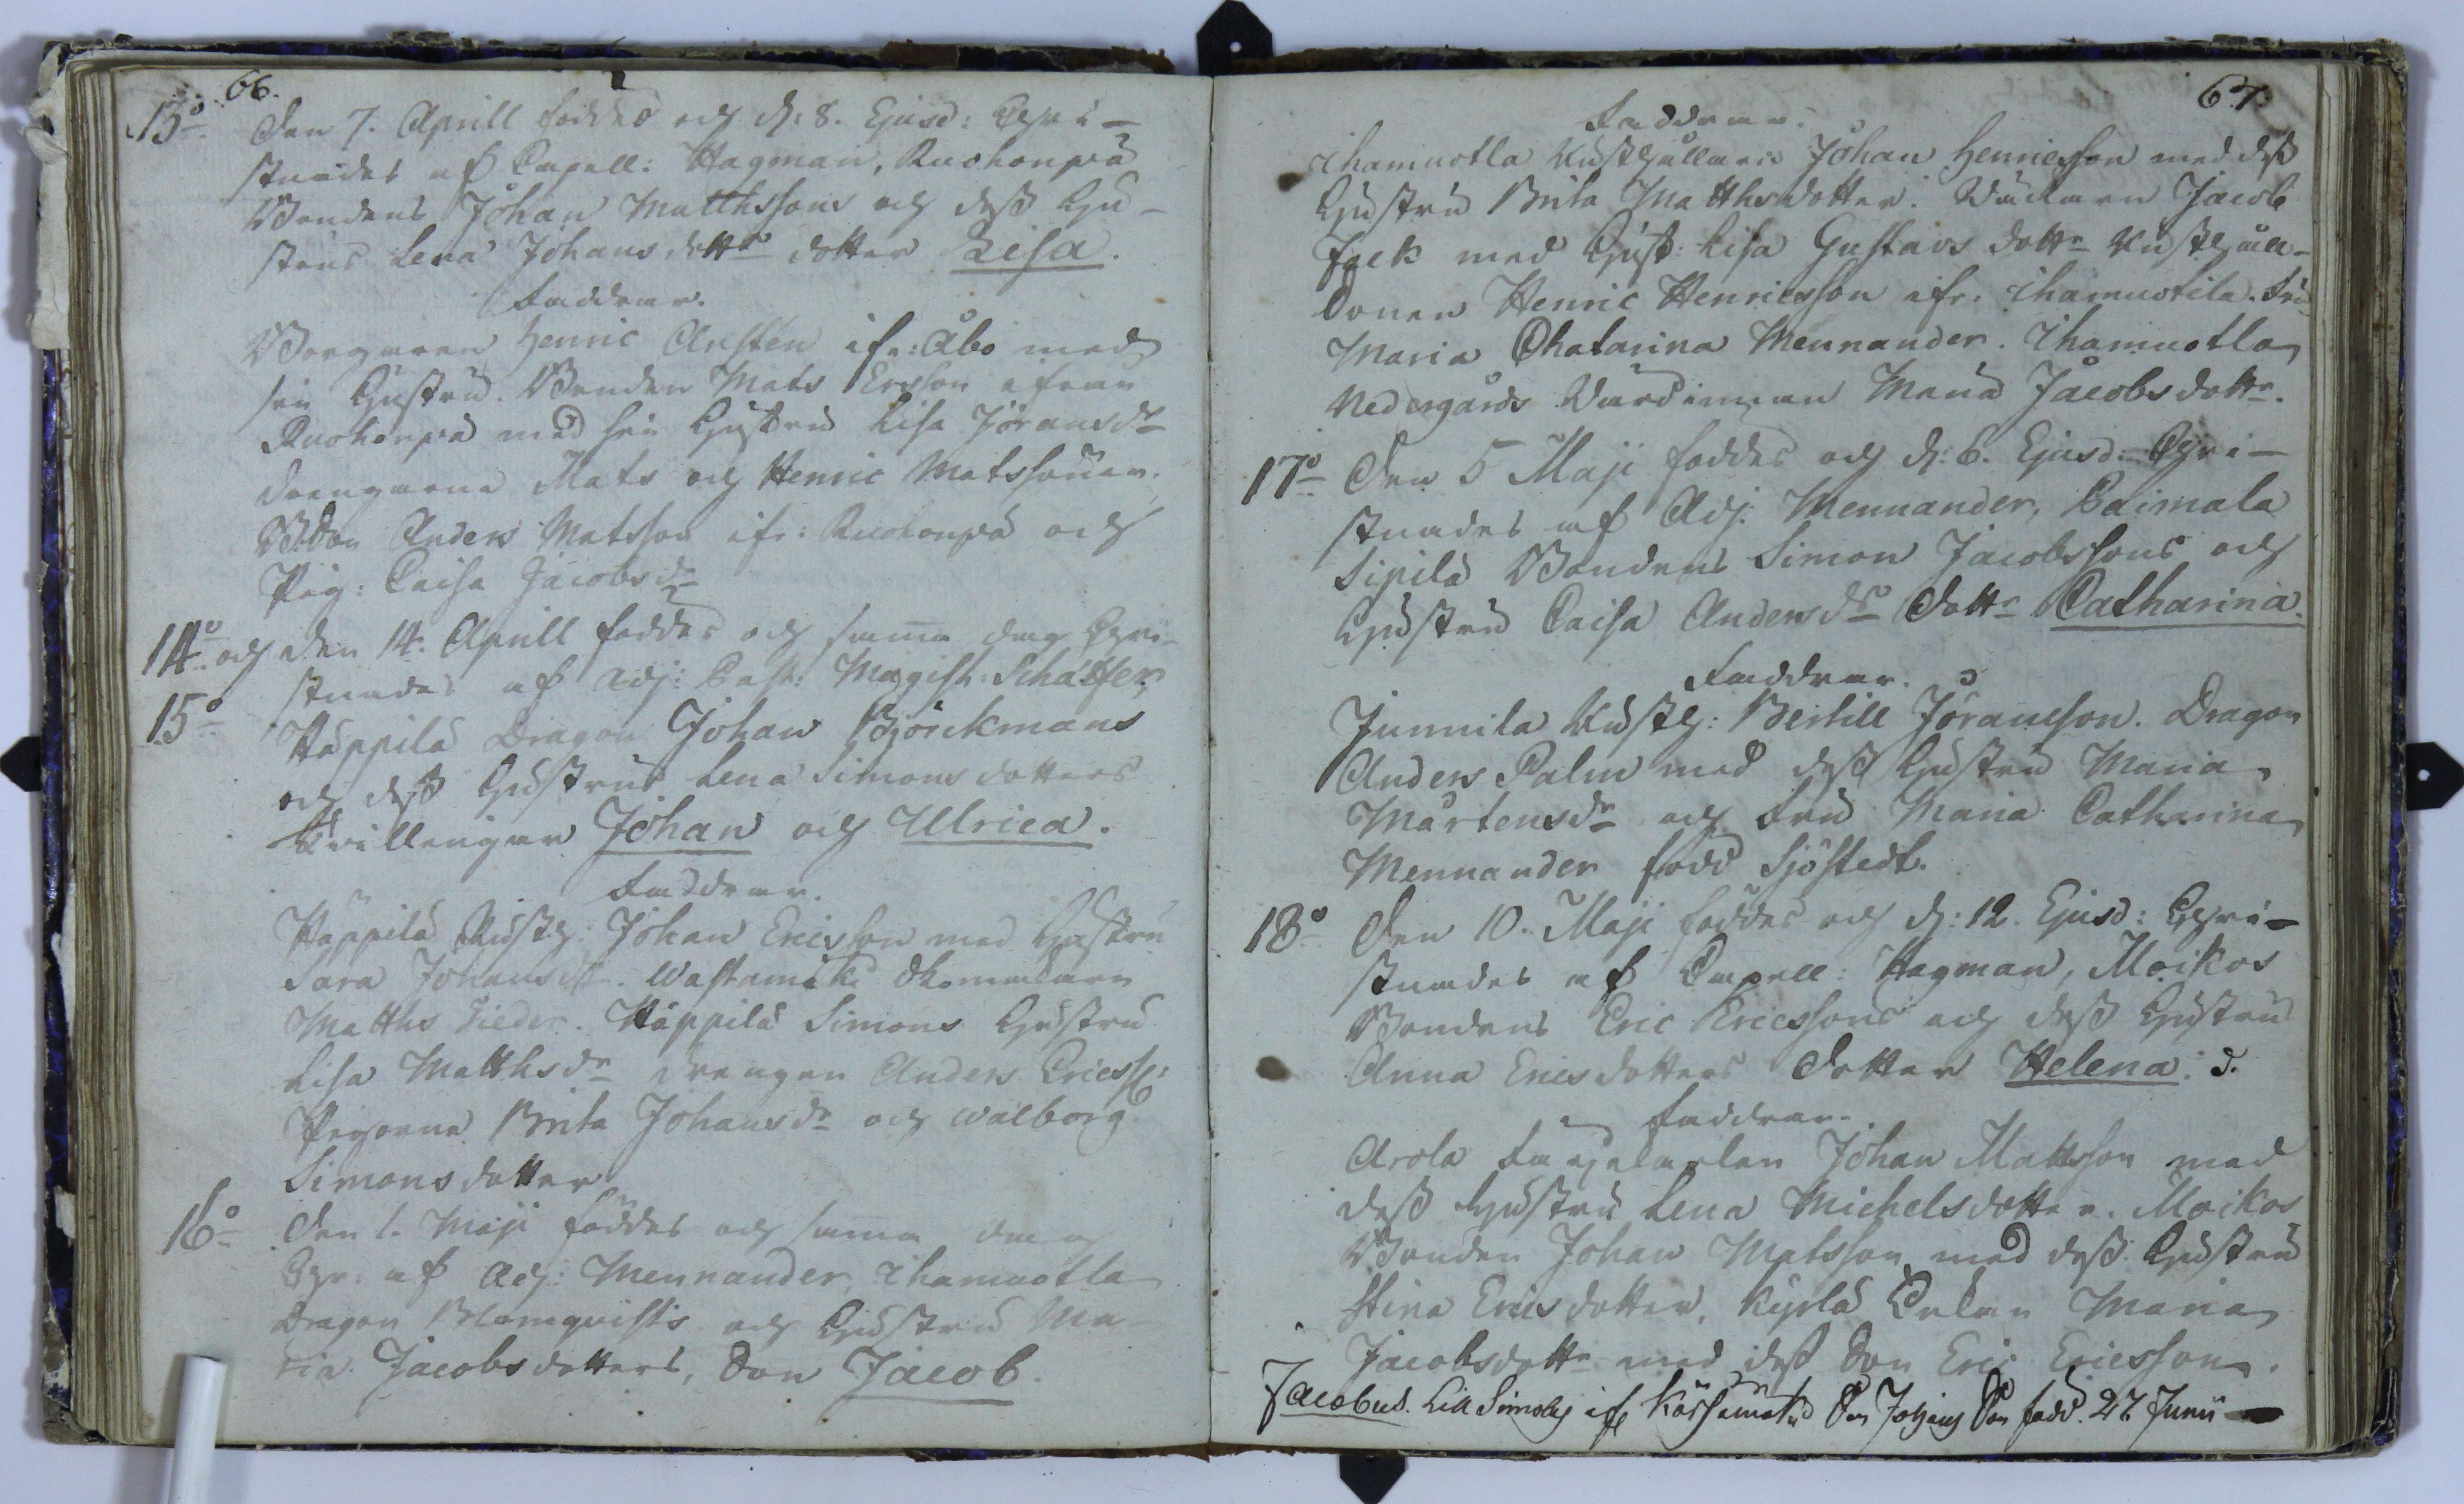 66.
13º Den 7. Aprill föddes och d: 8. Ejusd: Chri-
stnades af Capell: Hagman, Ruohonpää
Bondens Johan Matthssons och dess Hu-
strus Lena Johansdottr dotter Lisa.
Faddrar.
Borgaren Henric Arsten ifr: Åbo med
sin Hustru. Bonden Mats Ersson ifrån
Ruohonpää med sin Hustru Lisa Jöransdr
Drengarne Mats och Henric Matssöner.
B.Son Anders Matsson ifr: Ruohonpää och
Pig: Caisa Jacobsdr
14º och den 14. Aprill föddes och samma dag Chri-
15º stnades af Adj: Past: Magist: Schäffer,
Häppilä Dragon Johan Björckmans
och dess Hustrus Lena Simonsdotters
Tvillingar Johan och Ulrica.
Faddrar.
Häppilä Rusth: Johan Ericsson med Hustru
Sara Johansdr. Wastamäki Skomakare
Matths Lieder. Häppilä Simons Hustru
Lisa Matthsdr drengen Anders Ericss:
Pigorna Brita Johansdr och Walborg
Simonsdotter
16º Den 1. Maji föddes och samma dag
Chr: af Adj: Mennander, Ihamuotla
Dragon Blomqvists och Hustru Ma-
ria Jacobsdotters, Son Jacob.
67.
Faddrar.
Ihamuotla Rusthållaren Johan Henricsson med dess
Hustru Brita Matthsdotter. Ryttaren Jacob
Feck med Hust: Lisa Gustavs dottr Rusthåll-
Sonen Henric Henricsson ifr. Ihamuotila. Fru
Maria Chatarina Mennander. Ihamuotla
Nedergårds Värdinnan Maria Jacobs dottr.
17º Den 5 Maji föddes och d: 6. Ejusd: Chri-
stnades af Adj: Mennander, Paimala
Sipilä Bondens Simon Jacobssons och
Hustru Caisa Andersdr Dottr Catharina.
Faddrar.
Junnila Rusth: Bertill Jöransson. Dragon
Anders Palm med dess Hustru Maria
Mårtensdr och Fru Maria Catharina
Mennander född Sjöstedt.
18º Den 10. Maji föddes och d: 12. Ejusd: Chri-
stnades af Capell: Hagman, Moikos
Bondens Eric Ericssons och dess Hustru
Anna Ericsdotters Dotter Helena: d.
Faddrar.
Arola Johan Mattsson med
dess Hustru Lena Michelsdotter. Moikos
Bonden Johan Matsson med dess Hustru
Stina Ericsdotter, Kyrlä Enkan Maria
Jacobsdottr med dess Son Eric Ericsson.
Jacobus. Lill Simola ifr Son född. 27 Junii